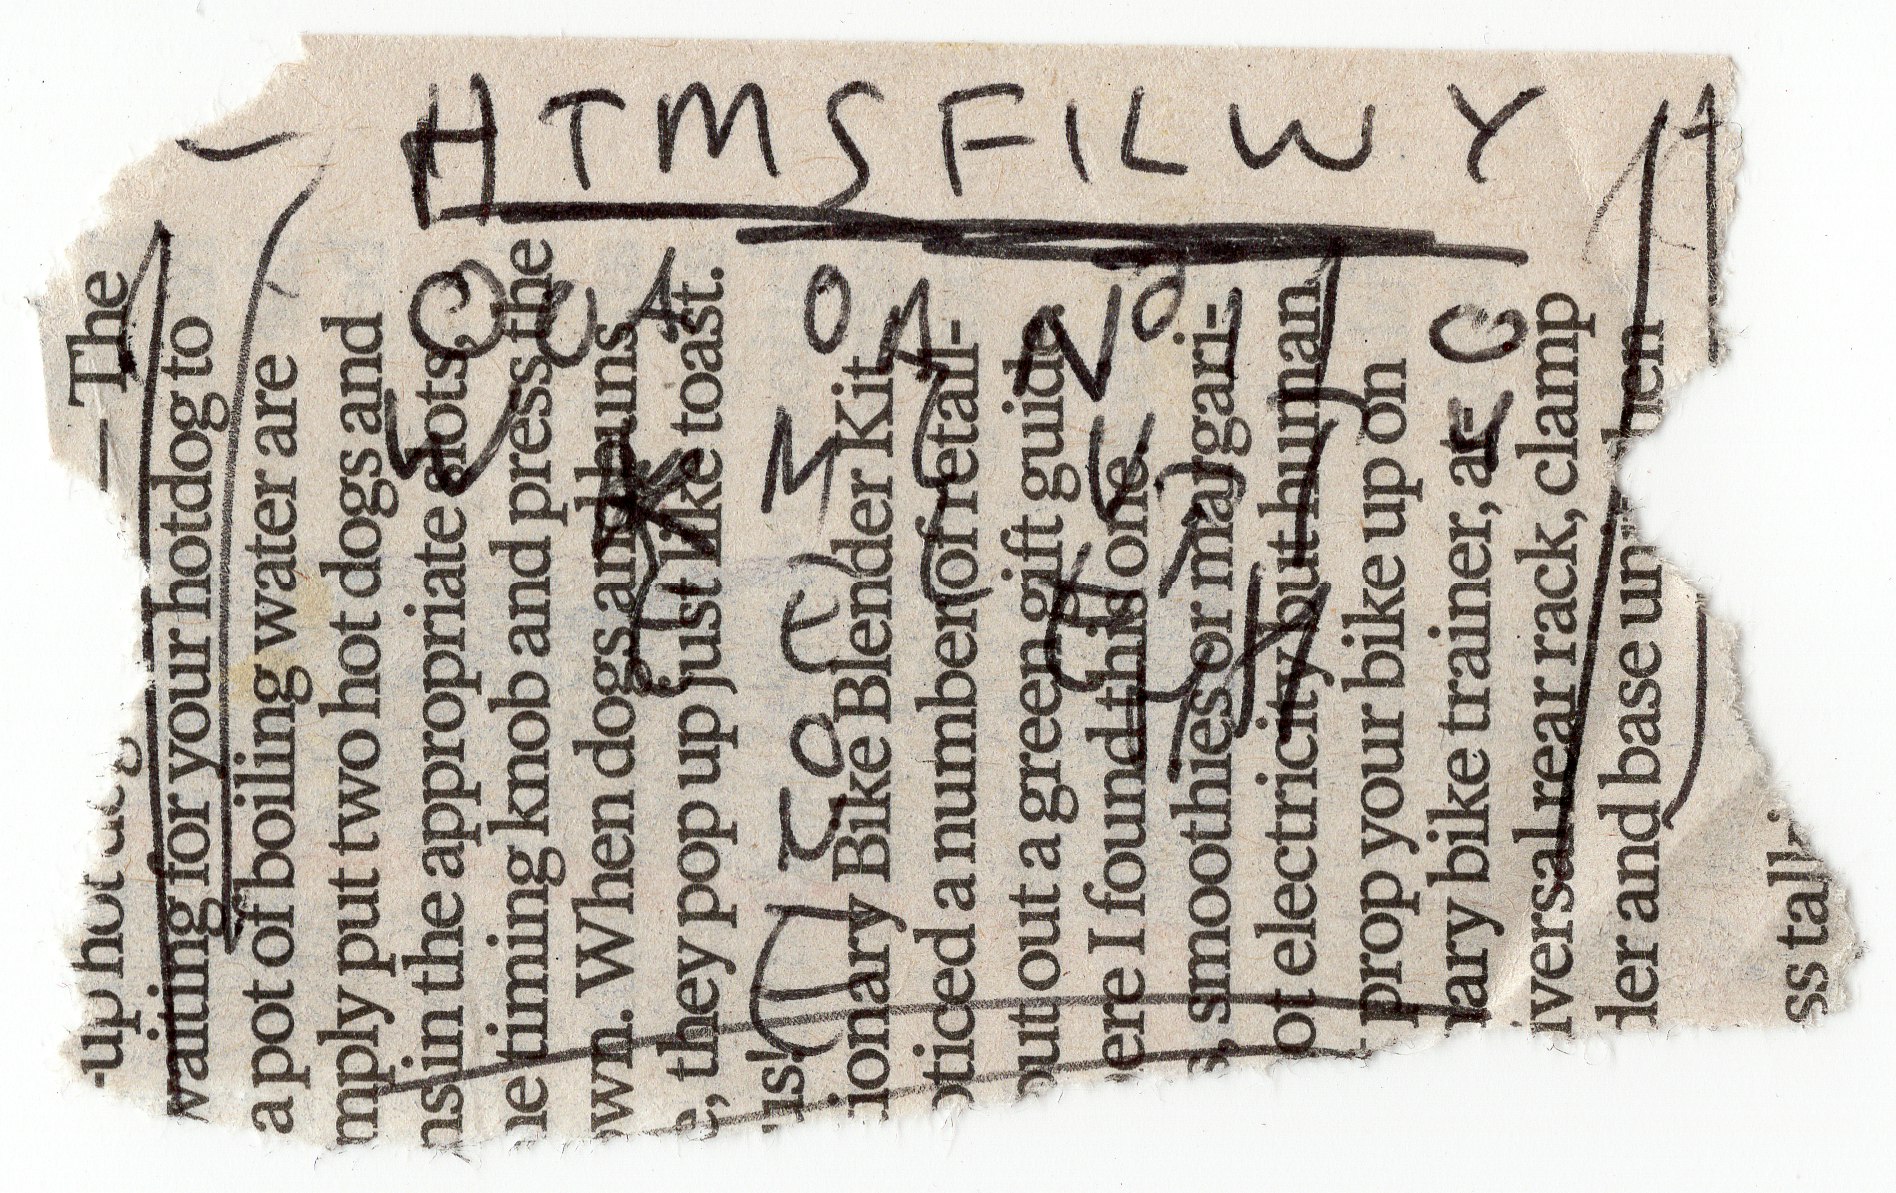 HTMSFILWY
-up hot dog — The
waiting for your hotdog to
a pot of boiling water are
mply put two hot dogs and
ns in the appropriate slots,
ne timing knob and press the
own. When dogs and buns
e, they pop up just like toast.
us!
ionary Bike Blender Kit
oticed a number of retail-
out out a green gift guide
ere I found this one
s, smoothies or margari-
ot electricity but human
prop your bike up on
nary bike trainer, at-
iversal rear rack, clamp
der and base
ss talk